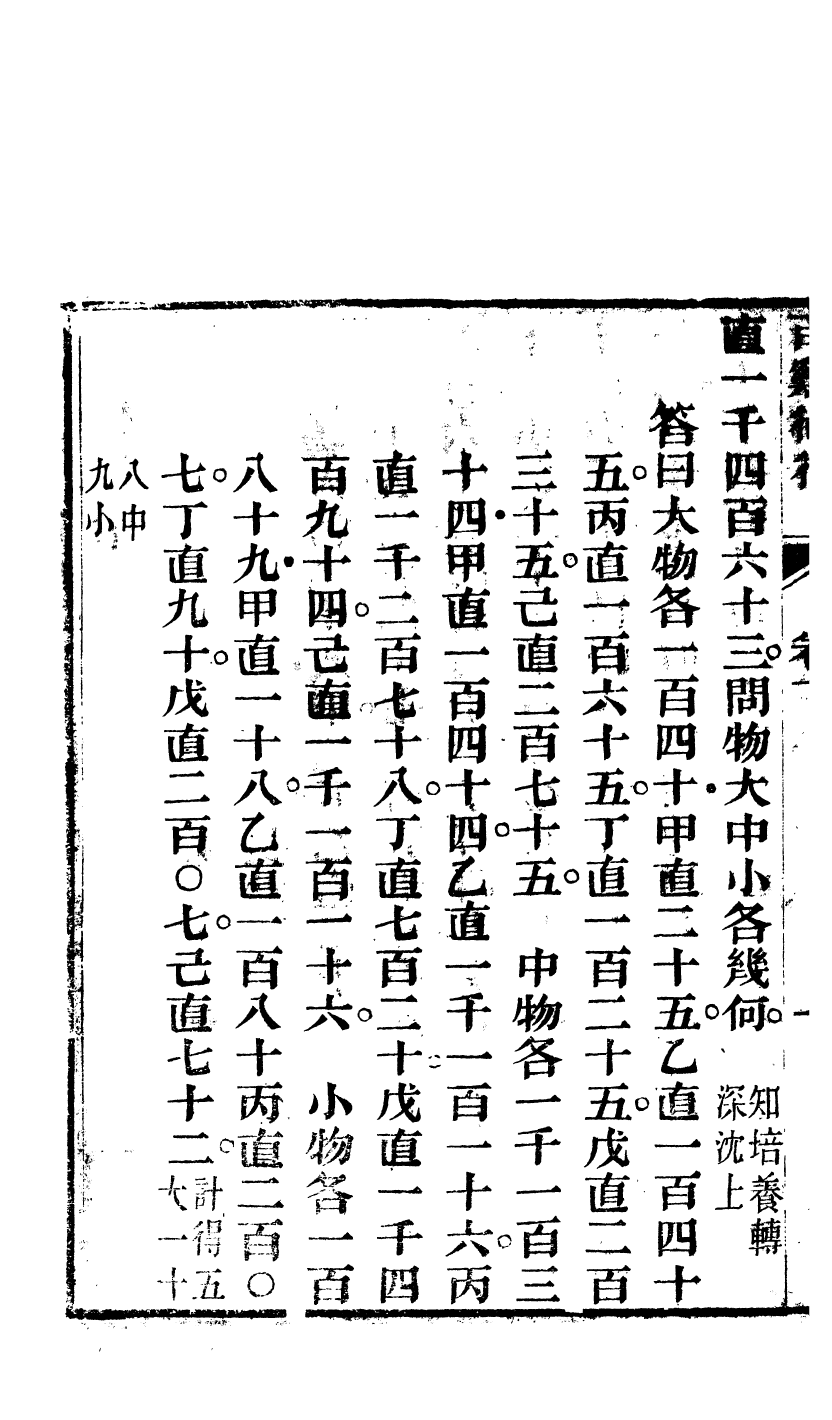 百雞術衍 卷一 一
直一千四百六十三問物大中小各幾何 知培養轉
深沈上
答曰大物各一百四十甲直二十五乙直一百四十
五丙直一百六十五丁直一百二十五戊直二百
三十五己直二百七十五 中物各一千一百三
十四甲直一百四十四乙直一千一百一十六丙
直一千二百七十八丁直七百二十戊直一千四
百九十四己直一千一百一十六 小物各一百
八十九甲直一十八乙直一百八十丙直二百〇
七丁直九十戊直二百〇七己直七十二 計得五
大一十
八中
九小